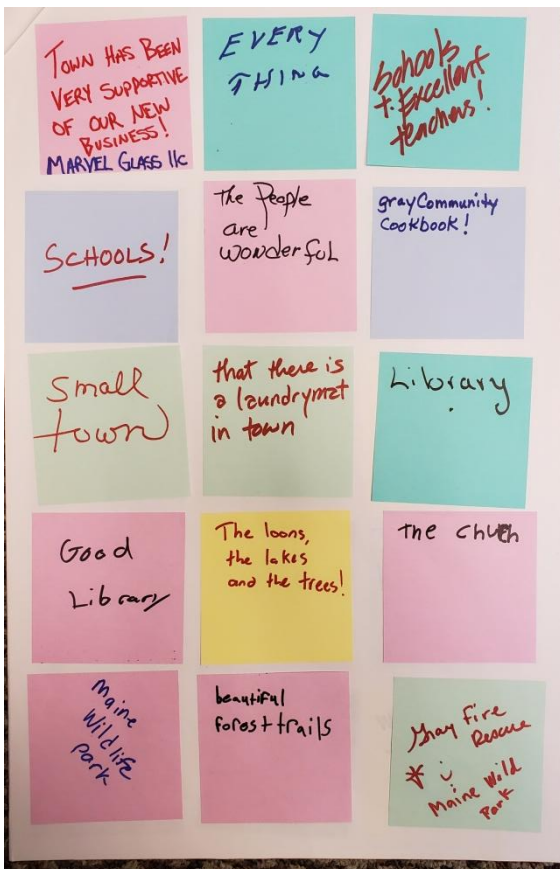 TOWN HAS BEEN
VERY SUPPORTIVE
OF OUR NEW
BUSINESS!
MARVEL GLASS llc
EVERY
THING
Schools
+ Excellent
teachers!
SCHOOLS!
The People
are
wonderful
gray Community
Cookbook!
Small
town
that there is
a laundrymat
in town
Library
Good
Library
The loons,
the lakes
and the trees!
The chuch
Maine
Wildlife
park
beautiful
forest trails
Gray Fire
Rescue
Maine Wild
Park